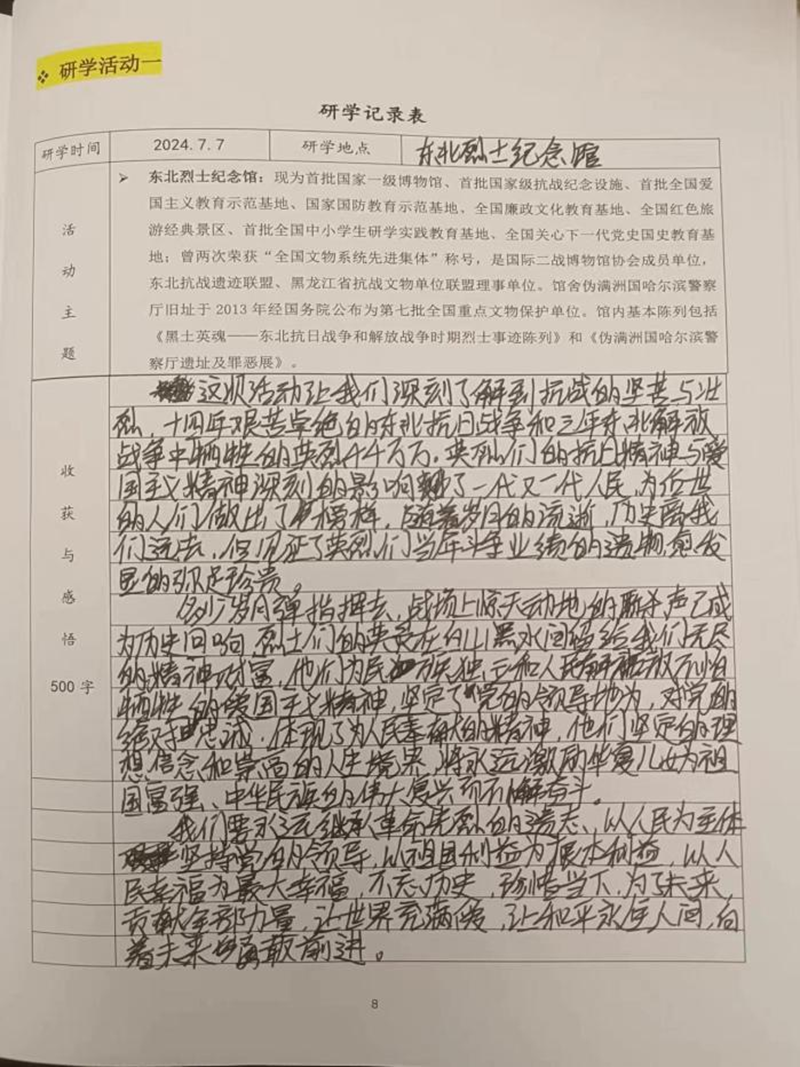 ❖ 研学活动一
研学记录表
研学时间 2024.7.7 研学地点 东北烈士纪念馆
活动主题
➢ 东北烈士纪念馆：现为首批国家一级博物馆、首批国家级抗战纪念设施、首批全国爱
国主义教育示范基地、国家国防教育示范基地、全国廉政文化教育基地、全国红色旅
游经典景区、首批全国中小学生研学实践教育基地、全国关心下一代党史国史教育基
地；曾两次荣获“全国文物系统先进集体”称号，是国际二战博物馆协会成员单位，
东北抗战遗迹联盟、黑龙江省抗战文物单位联盟理事单位。馆舍伪满洲国哈尔滨警察
厅旧址于 2013 年经国务院公布为第七批全国重点文物保护单位。馆内基本陈列包括
《黑土英魂——东北抗日战争和解放战争时期烈士事迹陈列》和《伪满洲国哈尔滨警
察厅遗址及罪恶展》。
收获与感悟
500 字
这次活动让我们深刻了解到抗战的坚苦与壮
烈，十四年艰苦卓绝的东北抗日战争和三年东北解放
战争中牺牲的英烈44万万，英烈们的抗日精神与爱
国主义精神深刻的影响了一代又一代人民，为后世
的人们做出了榜样，随着岁月的流逝，历史离我
们远去，但见证了英烈们当年斗争业绩的遗物愈发
显的弥足珍贵。
岁月弹指挥去，战场上惊天动地的厮杀声已成
为历史回响，烈士们的英灵在白山黑水间留给我们无尽
的精神财富，他们为民族独立和人民解放不怕
牺牲的爱国主义精神，坚定了党的领导地为，对党的
绝对忠诚，体现了为人民奉献的精神，他们坚定的理
想信念和崇高的人生境界，将永远激励华夏儿女为祖
国富强、中华民族的伟大复兴而不懈奋斗。
我们要永远继承革命先烈的遗志、以人民为主体
坚持党的领导，以祖国利益为根本利益，以人
民幸福为最大幸福，不忘历史，珍惜当下，为了未来，
贡献全部力量，让世界充满爱，让和平永住人间，向
着未来勇敢前进。
8